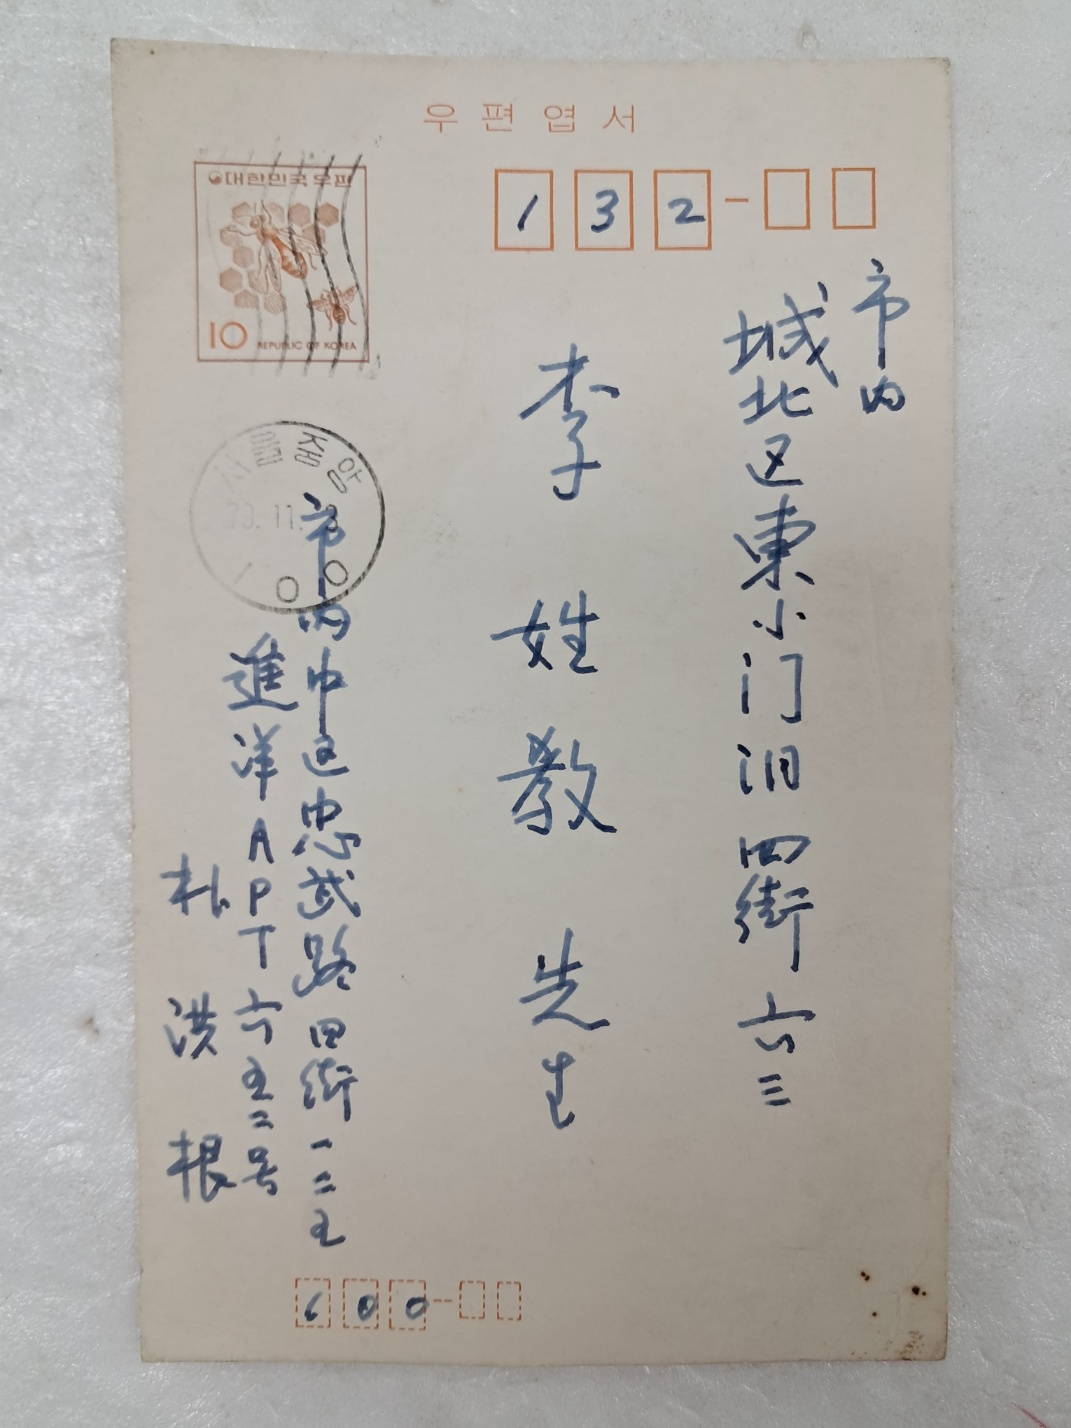 우편엽서
대한민국우편
10 REPUBLIC OF KOREA
132-
市内
城北区東小门洞四街六三
李姓教先生
서울중앙
79.11.
100
市内中区忠武路四街一二五
進洋APT六五二号
朴洪根
100-